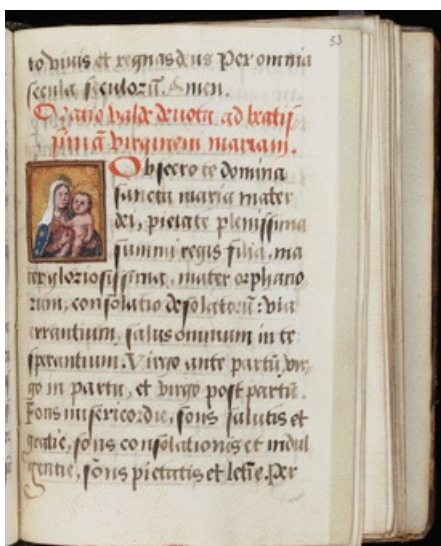 53
to vivis et regnas deus Per omnia
secula seculorū. Amen.
Oratio valde devota ad beatis
simā virginem mariam.
Obsecro te domina
sancta maria mater
dei, pietate plenissima
summi regis filia, ma
ter gloriosissima, mater orphano
rum, consolatio desolatorū: via
errantium, salus omnium in te
sperantium. Virgo ante partū, vir
go in partu, et virgo post partū.
Fons misericordie, fons salutis et
gratie, fons consolationis et indul
gentie, fons pietatis et letie. Per